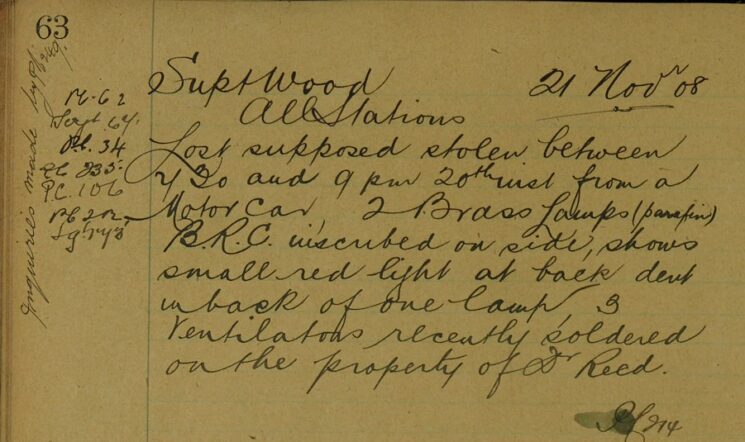 63
Inquiries made by PC
Supt Wood 21 Novr 08
All Stations
Lost supposed stolen between
7 30 and 9 pm 20th inst from a
Motor Car, 2 Brass Lamps (parafin)
B.R.C. inscribed on side, shows
small red light at back dent
in back of one lamp, 3
Ventilators recently soldered
on the property of Dr Reed.
PC 62
Sergt 64.
P.C. 34
PC 235.
P.C. 106
PC 212
PC 214